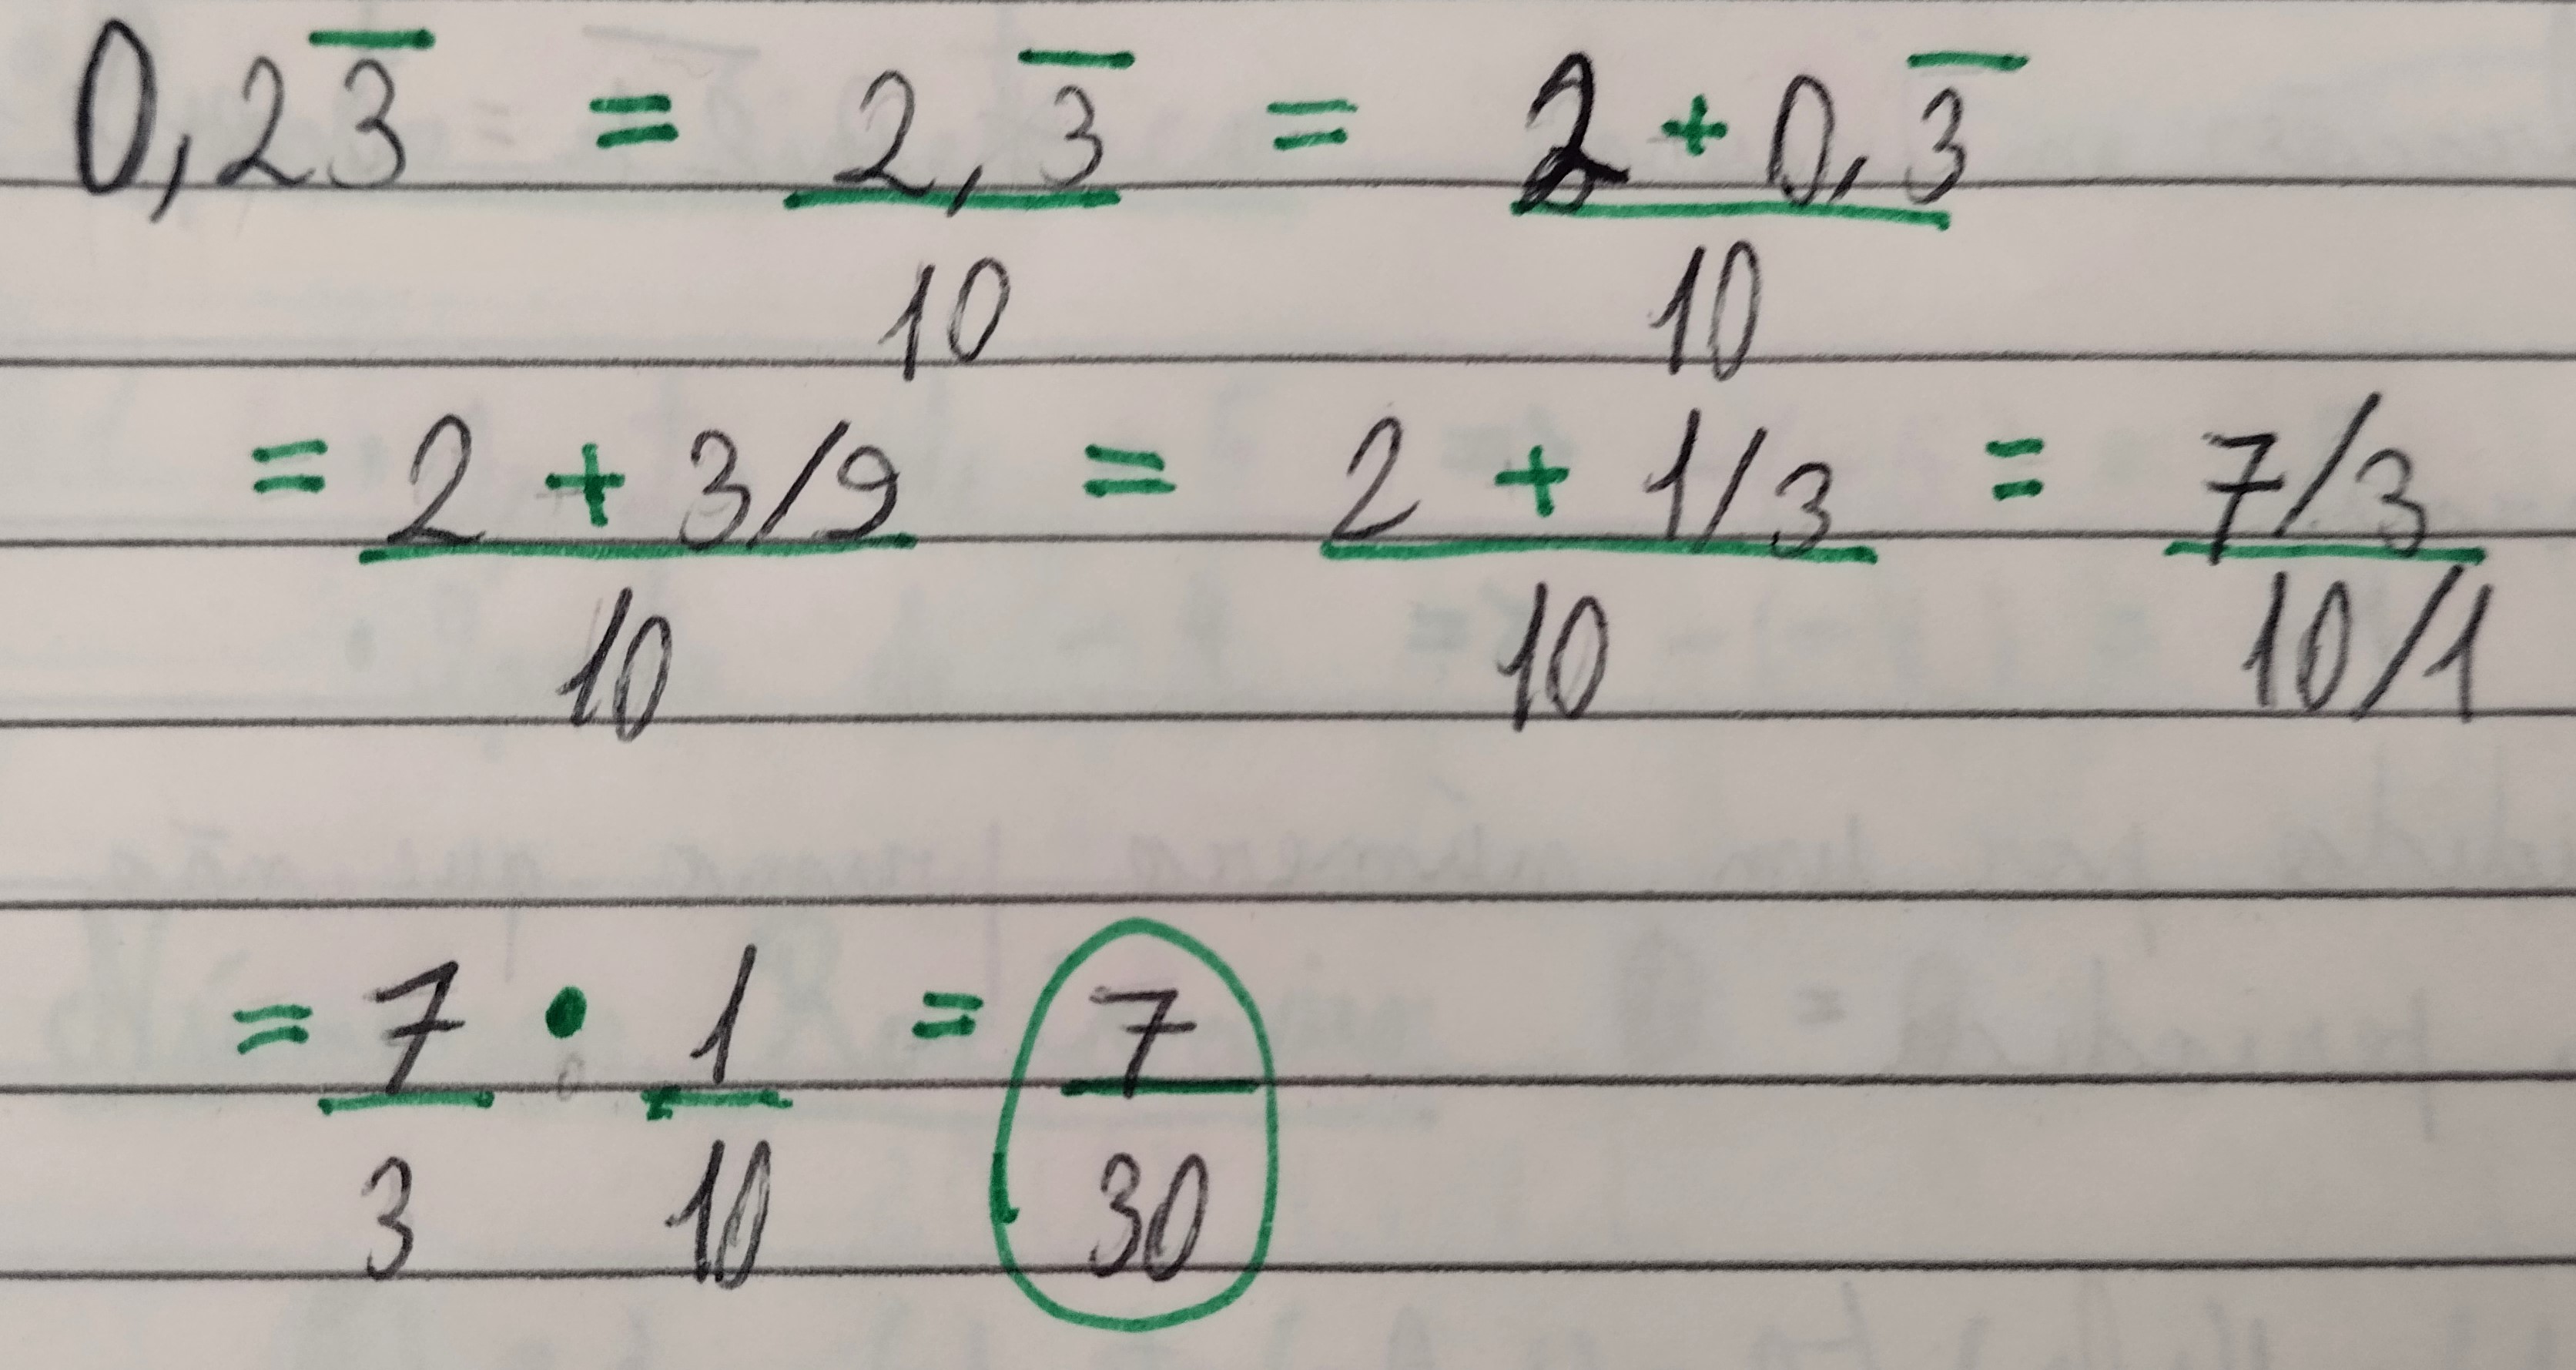 0,23̅ = 2,3̅/10 = 2 + 0,3̅/10
= 2 + 3/9/10 = 2 + 1/3/10 = 7/3/10/1
= 7/3 • 1/10 = 7/30